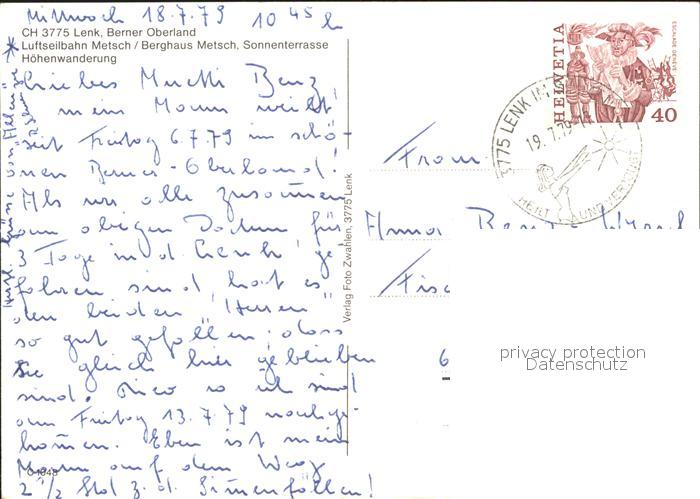 Mittwoch 18.7.79 10 45 h
CH 3775 Lenk, Berner Oberland
Luftseilbahn Metsch / Berghaus Metsch, Sonnenterrasse
Höhenwanderung
Liebes Mutti Benz
! mein Mann weilt!
seit Freitag 6.7.79 im schö-
nen Berner-Oberland!
Als wir alle zusammen
am obigen Datum für
3 Tage in d. Lenk ge-
fahren sind, hat es
den beiden "Herren"
so gut gefallen, dass
sie gleich hier geblieben
sind. Rico u. ich sind
am Freitag 13.7.79 nachge-
kommen. Eben ist mein
Mann auf dem Weg
2 ½ Std z. d. Simenfällen!
C 1048
Verlag Foto Zwahlen, 3775 Lenk
HELVETIA
ESCALADE GENÈVE
40
3775 LENK IM
19.7.79
HEILT UND VERJÜNGT
Frau
Anna Benz-
6
privacy protection
Datenschutz